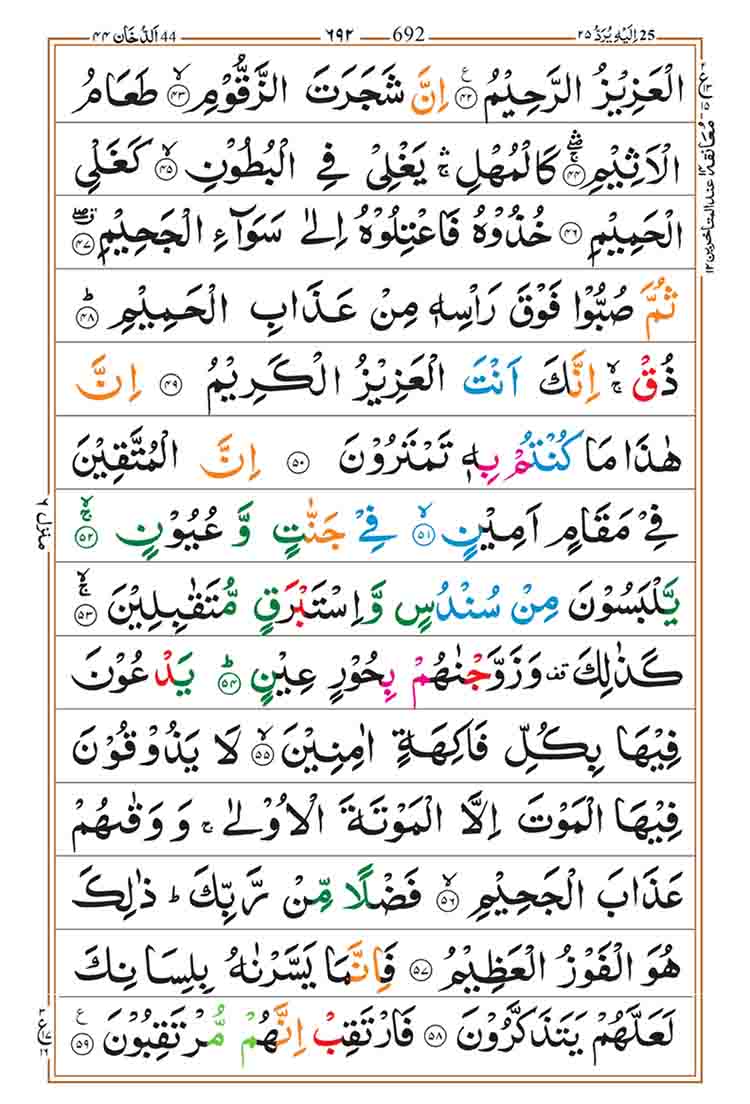 اِلَيْهِ يُرَدُّ ٢٥ 25
692 ٦٩٢
اَلدُّخَان ٤٤ 44
الْعَزِيْزُ الرَّحِيْمُ ﴿۴۲﴾ ع اِنَّ شَجَرَتَ الزَّقُّوْمِ ﴿۴۳﴾ ۙ طَعَامُ
الْاَثِيْمِ ﴿۴۴﴾ ۛۚ كَالْمُهْلِ ۛۚ يَغْلِىْ فِى الْبُطُوْنِ ﴿۴۵﴾ ۙ كَغَلْىِ
الْحَمِيْمِ ﴿۴۶﴾ خُذُوْهُ فَاعْتِلُوْهُ اِلٰى سَوَآءِ الْجَحِيْمِ ﴿۴۷﴾ ۖ
ثُمَّ صُبُّوْا فَوْقَ رَاْسِهٖ مِنْ عَذَابِ الْحَمِيْمِ ﴿۴۸﴾ ؕ
ذُقْ ۙۚ اِنَّكَ اَنْتَ الْعَزِيْزُ الْكَرِيْمُ ﴿۴۹﴾ اِنَّ
هٰذَا مَا كُنْتُمْ بِهٖ تَمْتَرُوْنَ ﴿۵۰﴾ اِنَّ الْمُتَّقِيْنَ
فِىْ مَقَامٍ اَمِيْنٍ ﴿۵۱﴾ ۙ فِىْ جَنّٰتٍ وَّ عُيُوْنٍ ﴿۵۲﴾ ۙۚ
يَّلْبَسُوْنَ مِنْ سُنْدُسٍ وَّاِسْتَبْرَقٍ مُّتَقٰبِلِيْنَ ﴿۵۳﴾ ۙۚ
كَذٰلِكَ قف وَزَوَّجْنٰهُمْ بِحُوْرٍ عِيْنٍ ﴿۵۴﴾ ؕ يَدْعُوْنَ
فِيْهَا بِكُلِّ فَاكِهَةٍ اٰمِنِيْنَ ﴿۵۵﴾ ۙ لَا يَذُوْقُوْنَ
فِيْهَا الْمَوْتَ اِلَّا الْمَوْتَةَ الْاُوْلٰى ۚ وَوَقٰىهُمْ
عَذَابَ الْجَحِيْمِ ﴿۵۶﴾ ۙ فَضْلًا مِّنْ رَّبِّكَ ؕ ذٰلِكَ
هُوَ الْفَوْزُ الْعَظِيْمُ ﴿۵۷﴾ فَاِنَّمَا يَسَّرْنٰهُ بِلِسَانِكَ
لَعَلَّهُمْ يَتَذَكَّرُوْنَ ﴿۵۸﴾ فَارْتَقِبْ اِنَّهُمْ مُّرْتَقِبُوْنَ ﴿۵۹﴾ ع
معانقة عند المتاخرين ١٢
منزل ٦